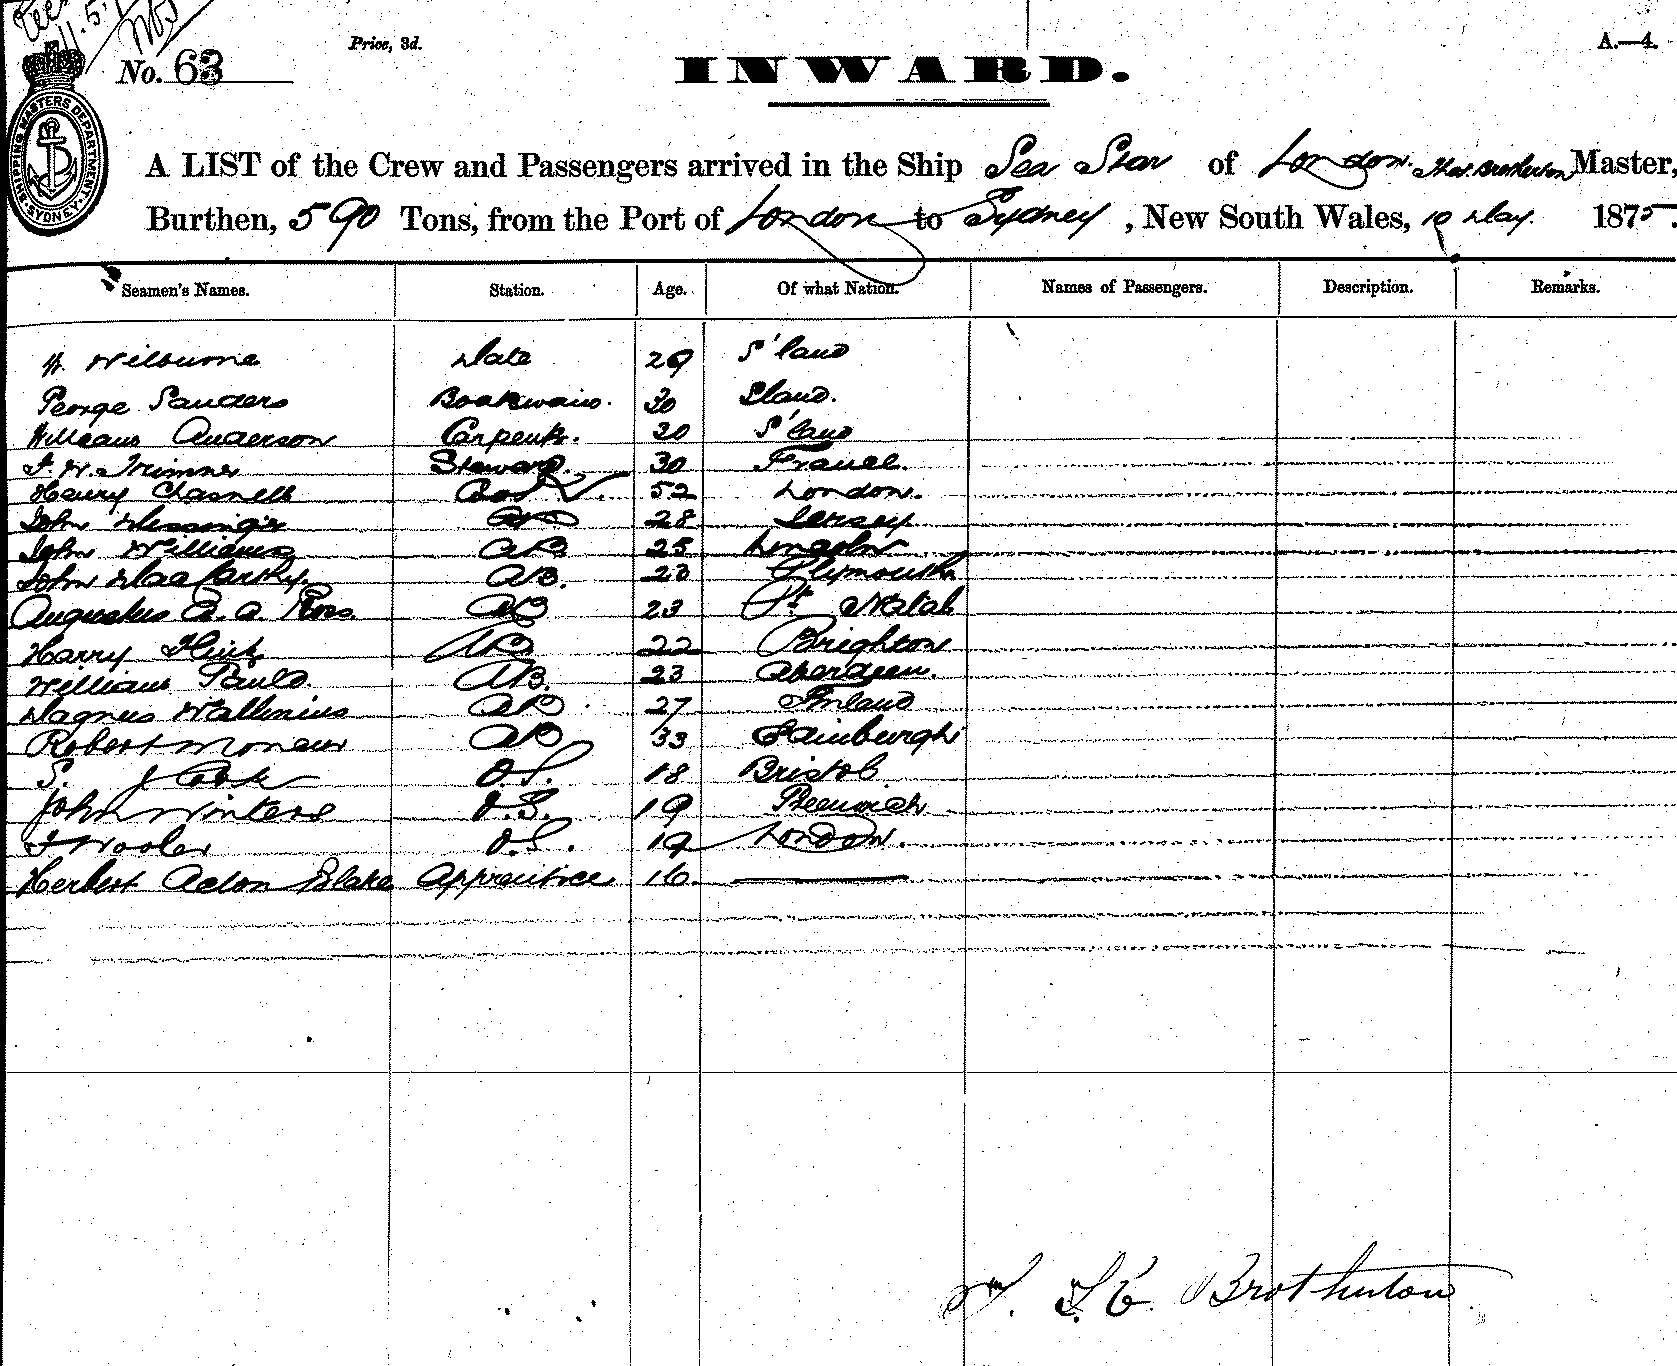 11.5.
No. 63
Price, 3d.
A.—4.
SHIPPING MASTERS DEPARTMENT SYDNEY
INWARD.
A LIST of the Crew and Passengers arrived in the Ship Sea Star of London. Thos. Brotherton Master,
Burthen, 590 Tons, from the Port of London to Sydney, New South Wales, 10 May. 1875.
Seamen's Names. Station. Age. Of what Nation. Names of Passengers. Description. Remarks.
W. Wilburne Mate 29 S'land
George Sanders Boatswain. 30 S'land.
William Anderson Carpentr. 30 S'land
J. W. Trimner Steward. 30 France.
Henry Chasnell Cook. 52 London.
John Messinger AB 28 Jersey
John Williams AB 25 Lincoln
John MacCarthy. AB. 23 Plymouth
Augustus A. Ross. AB 23 Pt. Natal
Harry AB 22 Brighton
William Pauld. AB. 23 Aberdeen.
Magnus Wallenius AB 27 Finland
Robert Moncur AB 33 Edinburgh
S. J Cook O.S. 18 Bristol
John Winters O.S. 19 Greenwich
J Wooler O.S. 19 London.
Herbert Acton Blake Apprentice 16.
T. C. Brotherton